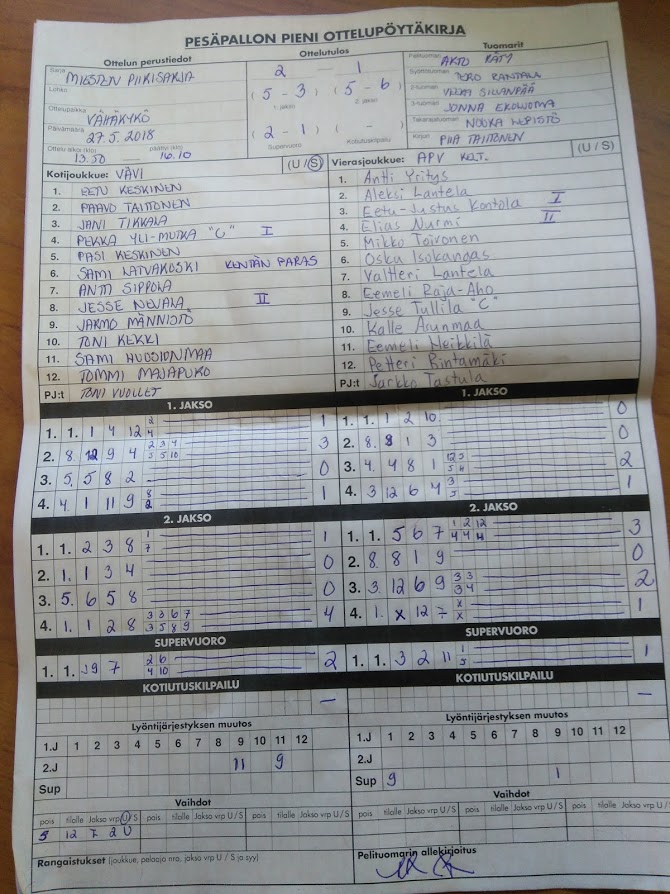 PESÄPALLON PIENI OTTELUPÖYTÄKIRJA
Ottelun perustiedot
Sarja MIESTEN PIIRISARJA
Lohko
Ottelupaikka VÄHÄKYRÖ
Päivämäärä 27.5.2018
Ottelu alkoi (klo) 13.50 päättyi (klo) 16.10
Ottelutulos
2 — 1
(5 - 3) (5 - 6)
1. jakso 2. jakso
(2 - 1) ( - )
Supervuoro Kotiutuskilpailu
Tuomarit
Pelituomari ARTO RÄTY
Syöttötuomari TERO RANTALA
2-tuomari VEIKKO SILLANPÄÄ
3-tuomari JONNA EKOLUOMA
Takarajatuomari NOORA LEPISTÖ
Kirjuri PIIA TAITTONEN
Kotijoukkue: VÄVI (U/S)
1. EETU KESKINEN
2. PAAVO TAITTONEN
3. JANI TIKKALA
4. PEKKA YLI-MUTKA "C" I
5. PASI KESKINEN
6. SAMI LATVAKOSKI KENTÄN PARAS
7. ANTTI SIPPOLA
8. JESSE NEVALA II
9. JARMO MÄNNISTÖ
10. TONI KEKKI
11. SAMI HUOSIONMAA
12. TOMMI MAJAPURO
PJ:t TONI VUOLLET
Vierasjoukkue: APV KELT. (U/S)
1. Antti Yritys
2. Aleksi Lantela
3. Eetu-Justus Kontola I
4. Elias Nurmi II
5. Mikko Toivonen
6. Oska Isokangas
7. Valtteri Lantela
8. Eemeli Raja-Aho
9. Jesse Tullila "C"
10. Kalle Arunmaa
11. Eemeli Heikkilä
12. Petteri Rintamäki
PJ:t Jarkko Tastula
1. JAKSO
1. 1. 1 4 12 2 4 1
2. 8. 12 9 4 2 3 4 5 5 10 3
3. 5. 5 8 2 0
4. 4. 1 11 9 8 2 1
1. JAKSO
1. 1. 1 2 10 0
2. 8. 8 1 3 0
3. 4. 4 8 1 12 3 5 4 2
4. 3 12 6 4 3 5 1
2. JAKSO
1. 1. 2 3 8 1 7 1
2. 1. 1 3 4 0
3. 5. 6 5 8 0
4. 1. 1 2 8 3 3 6 7 3 5 8 9 4
2. JAKSO
1. 1. 5 6 7 1 2 12 4 4 4 3
2. 8. 8 1 9 0
3. 3. 12 6 9 3 3 3 4 2
4. 1. x 12 7 x x 1
SUPERVUORO
1. 1. 9 7 2 6 4 10 2
SUPERVUORO
1. 1. 3 2 11 1 5 1
KOTIUTUSKILPAILU
–
KOTIUTUSKILPAILU
–
Lyöntijärjestyksen muutos
1.J 1 2 3 4 5 6 7 8 9 10 11 12
2.J 11 9
Sup
Lyöntijärjestyksen muutos
1.J 1 2 3 4 5 6 7 8 9 10 11 12
2.J
Sup 9 1
Vaihdot
pois tilalle Jakso vrp U / S pois tilalle Jakso vrp U / S pois tilalle Jakso vrp U / S
5 12 7 2 U
Vaihdot
pois tilalle Jakso vrp U / S pois tilalle Jakso vrp U / S pois tilalle Jakso vrp U / S
Rangaistukset (joukkue, pelaaja nro, jakso vrp U / S ja syy)
Pelituomarin allekirjoitus